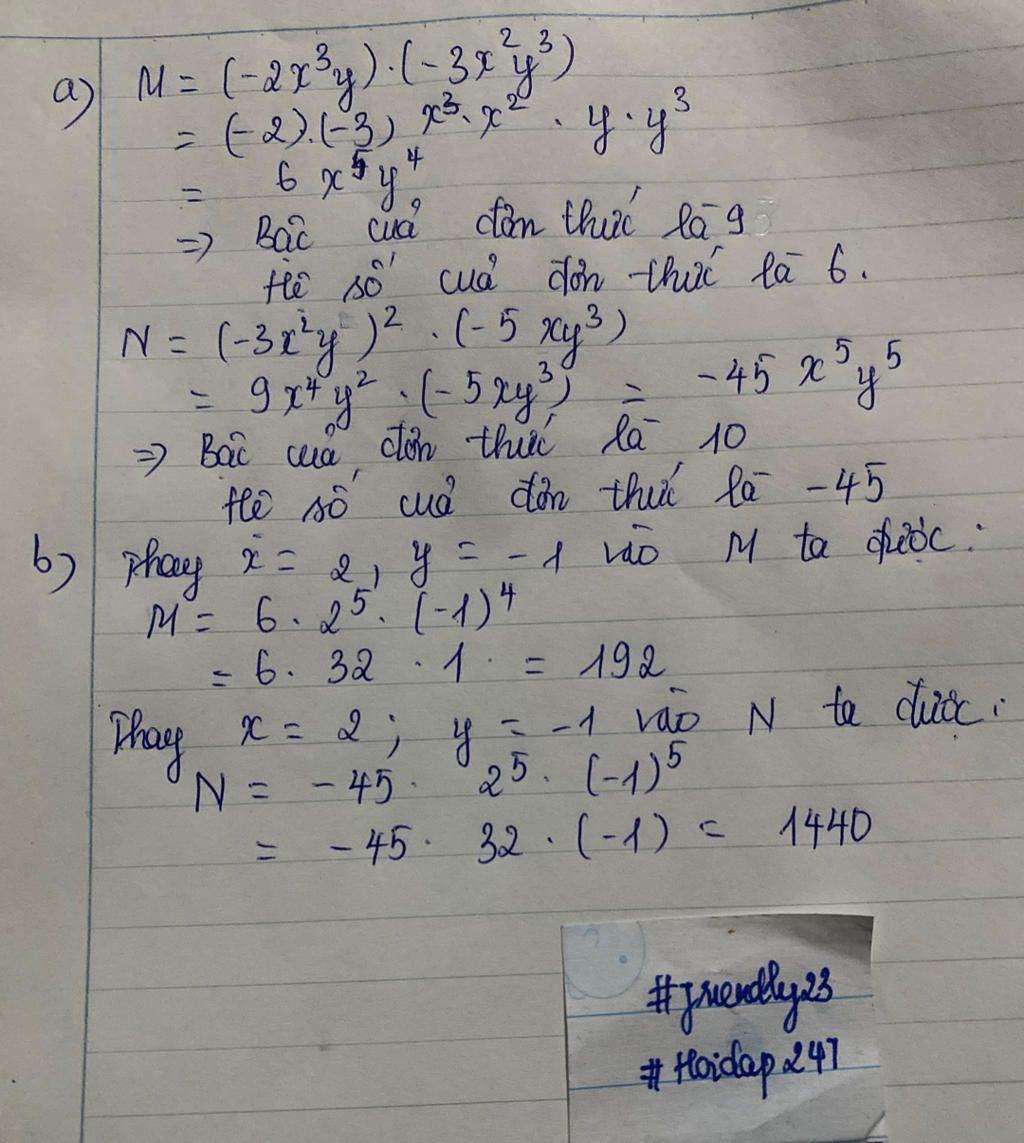 a) M = (-2x³y).(-3x²y³)
= (-2).(-3) x³.x² . y.y³
= 6 x⁵y⁴
=> Bậc của đơn thức là 9
Hệ số của đơn thức là 6.
N = (-3x²y)² . (-5xy³)
= 9x⁴y² . (-5xy³) = -45 x⁵y⁵
=> Bậc của đơn thức là 10
Hệ số của đơn thức là -45
b) Thay x = 2, y = -1 vào M ta được:
M = 6. 2⁵. (-1)⁴
= 6. 32 . 1 . = 192
Thay x = 2; y = -1 vào N ta được:
N = -45. 2⁵. (-1)⁵
= -45. 32 . (-1) = 1440
#friendly23
#Hoidap247